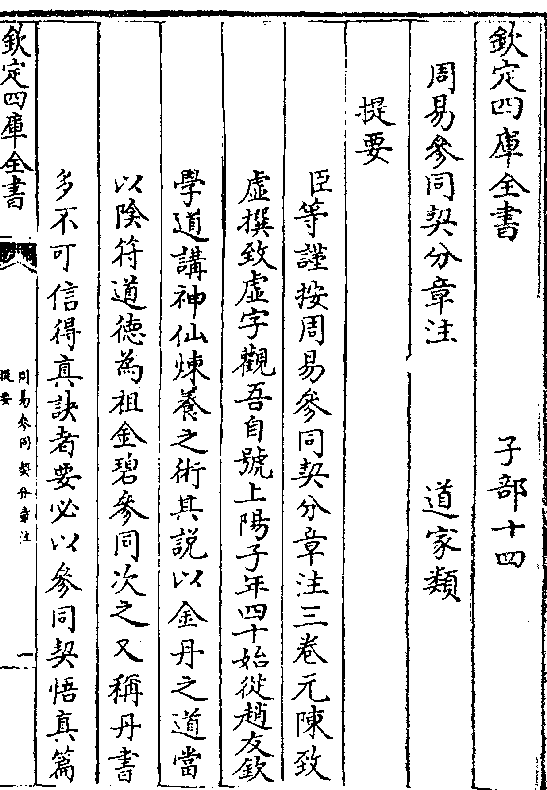 欽定四庫全書　子部十四
周易參同契分章注　道家類
提要
臣等謹按周易參同契分章注三卷元陳致
虛撰致虛字觀吾自號上陽子年四十始從趙友欽
學道講神仙煉養之術其說以金丹之道當
以陰符道德為祖金碧參同次之又稱丹書
多不可信得真訣者要必以參同契悟真篇
欽定四庫全書
周易參同契分章注
提要
一